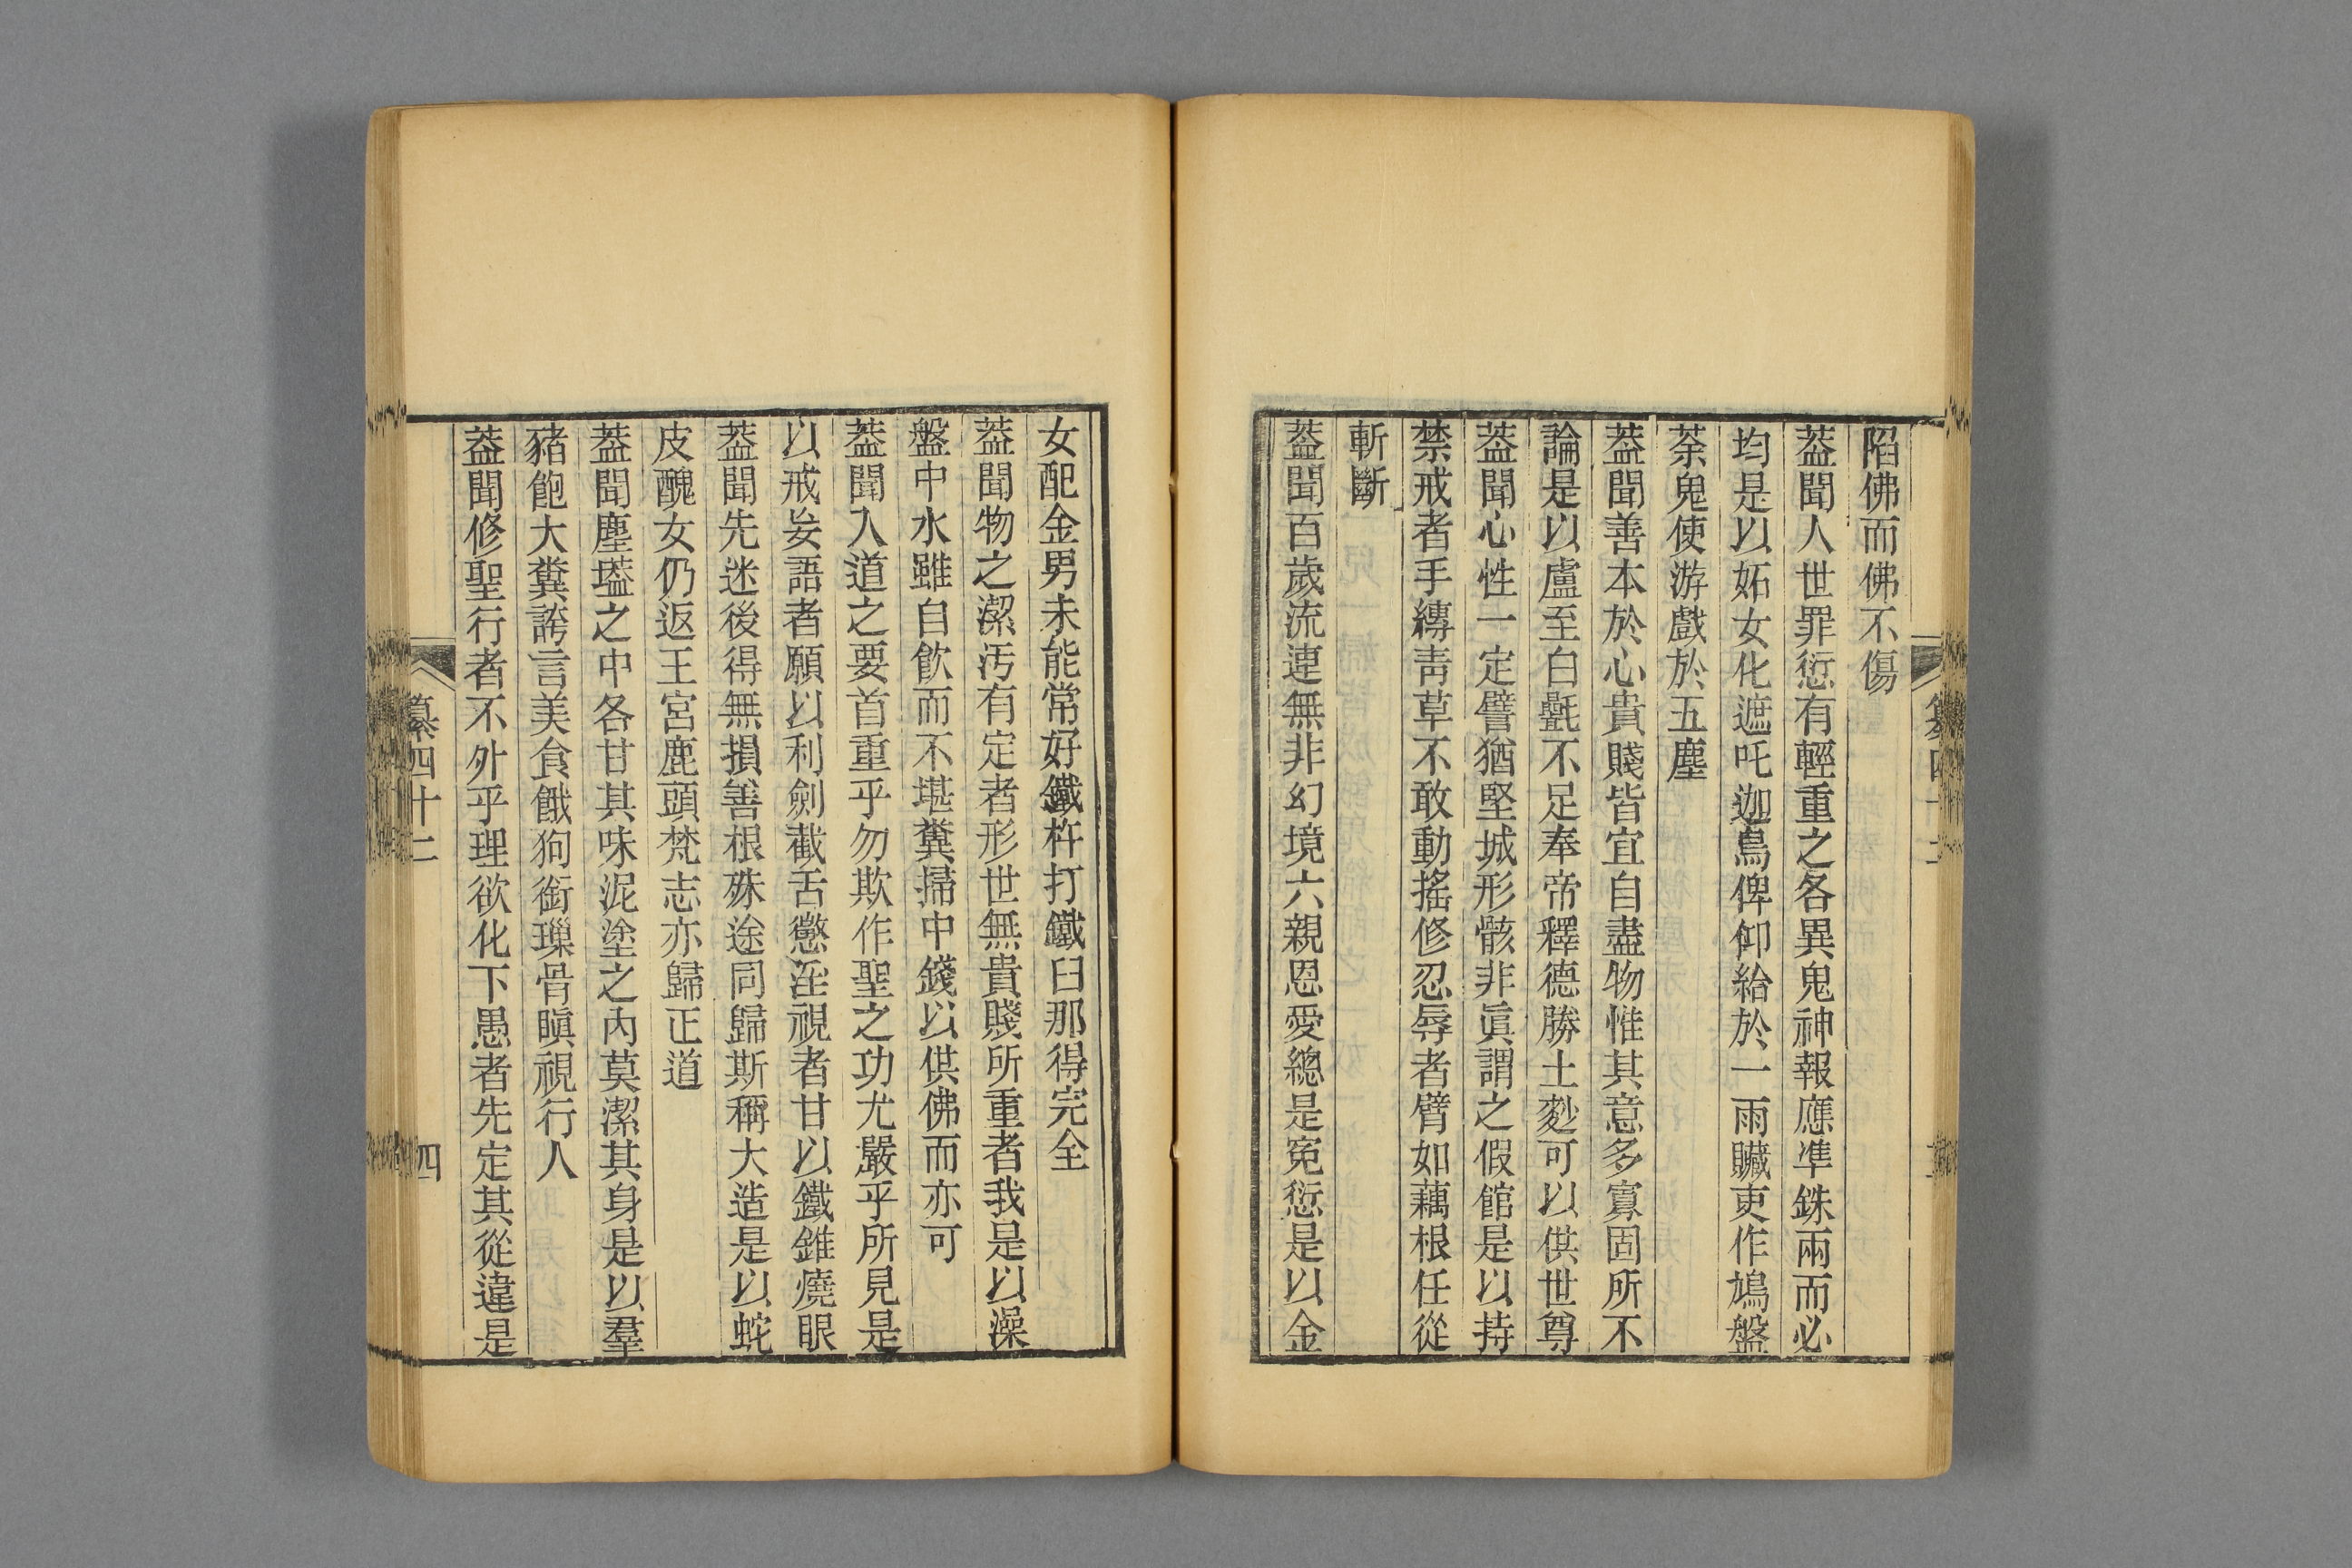 陷佛而佛不傷
葢聞人世罪愆有輕重之各異鬼神報應準銖兩而必
均是以妬女化遮吒迦鳥俾仰給於一雨贓吏作鳩盤
荼鬼使游戲於五塵
葢聞善本於心貴賤皆宜自盡物惟其意多寡固所不
論是以盧至白㲲不足奉帝釋德勝土麨可以供世尊
葢聞心性一定譬猶堅城形骸非眞謂之假館是以持
禁戒者手縛靑草不敢動搖修忍辱者臂如藕根任從
斬斷
葢聞百歲流連無非幻境六親恩愛總是冤愆是以金
女配金男未能常好鐵杵打鐵臼那得完全
葢聞物之潔汚有定者形世無貴賤所重者我是以澡
盤中水雖自飮而不堪糞掃中錢以供佛而亦可
葢聞入道之要首重乎勿欺作聖之功尤嚴乎所見是
以戒妄語者願以利劍截舌懲淫視者甘以鐵錐燒眼
葢聞先迷後得無損善根殊途同歸斯稱大造是以蛇
皮醜女仍返王宮鹿頭梵志亦歸正道
葢聞塵壒之中各甘其味泥塗之內莫潔其身是以羣
豬飽大糞誇言美食餓狗銜瓅骨瞋視行人
葢聞修聖行者不外乎理欲化下愚者先定其從違是
纂四十二
四